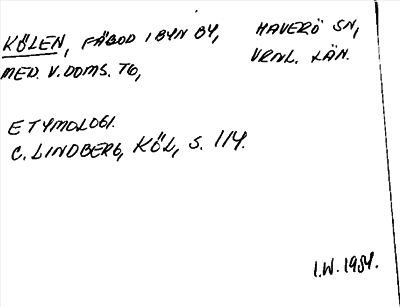 KÖLEN, FÄBOD I BYN BY, HAVERÖ SN,
MED. V. DOMS. TG, VRNL. LÄN.
ETYMOLOGI.
C. LINDBERG, KÖL, S. 114.
I.W. 1954.